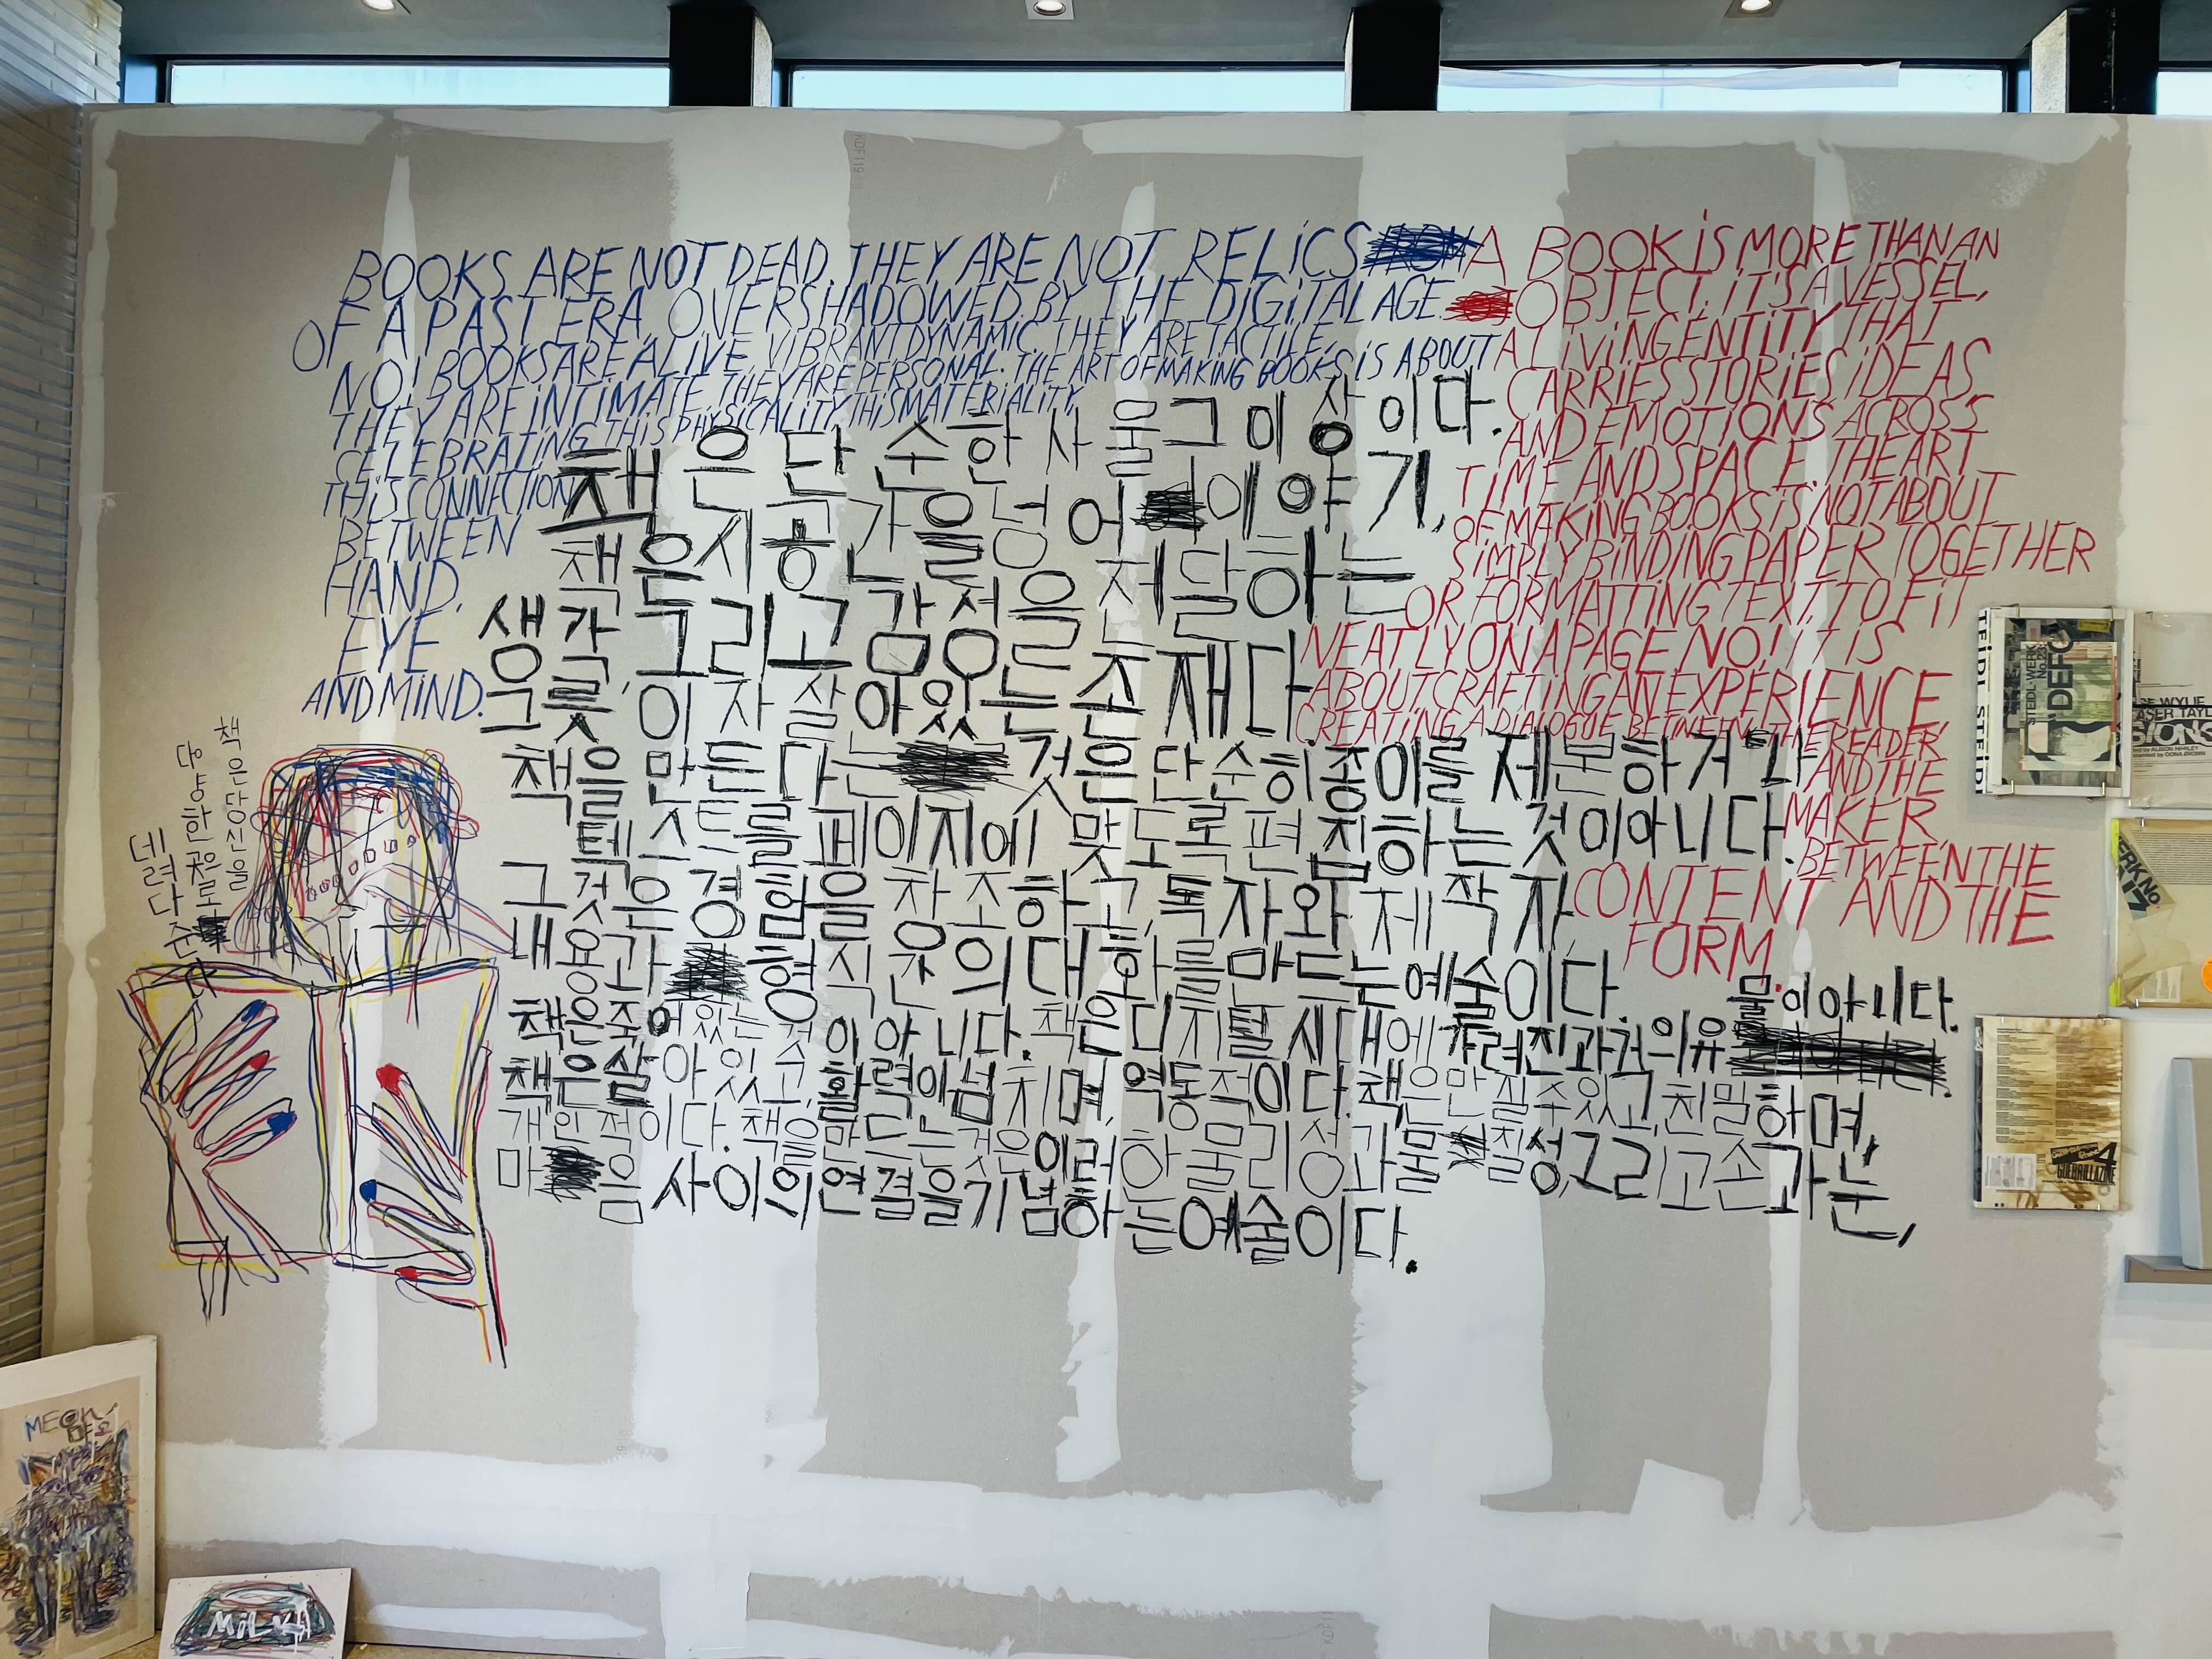 BOOKS ARE NOT DEAD. THEY ARE NOT RELICS
OF A PAST ERA, OVERSHADOWED BY THE DIGITAL AGE.
NO! BOOKS ARE ALIVE, VIBRANT DYNAMIC. THEY ARE TACTILE,
THEY ARE INTIMATE. THEY ARE PERSONAL. THE ART OF MAKING BOOKS IS ABOUT
CELEBRATING THIS PHYSICALITY, THIS MATERIALITY,
THIS CONNECTION
BETWEEN
HAND,
EYE
AND MIND.
A BOOK IS MORE THAN AN
OBJECT. IT'S A VESSEL,
A LIVING ENTITY THAT
CARRIES STORIES IDEAS,
AND EMOTIONS ACROSS
TIME AND SPACE. THE ART
OF MAKING BOOKS IS NOT ABOUT
SIMPLY BINDING PAPER TOGETHER
OR FORMATTING TEXT TO FIT
NEATLY ON A PAGE. NO! IT IS
ABOUT CRAFTING AN EXPERIENCE,
CREATING A DIALOGUE BETWEEN THE READER
AND THE
MAKER,
BETWEEN THE
CONTENT AND THE
FORM.
책은 단순한 사물 그 이상이다.
책은 시공간을 넘어 이야기,
생각, 그리고 감정을 전달하는
그릇, 이자 살아있는 존재다
책을 만든다는 것은 단순히 종이를 제본하거나
텍스트를 페이지에 맞도록 편집하는 것이 아니다.
그것은 경험을 창조하고, 독자와 제작자,
내용과 형식 의 대화를 만드는 예술이다.
책은 죽어있는 것이 아니다. 책은 디지털 시대에 가려진 과거의 유물이 아니다.
책은 살아있고, 활력이 넘치며, 역동적이다. 책은 만질 수 있고, 친밀하며,
개인적이다. 책을 만드는 것은 이러한 물리성과 물질성, 그리고 손과 눈,
마음 사이의 연결을 기념하는 예술이다.
책은 당신을
다양한 곳으로
데려다준다
MEOW
야옹
MILK
STEIDL-WERK
No.23:
DEFC
SE WYLIE
ASER TAYL
SIONS
ERK No.
4
GUERRILLAZINE